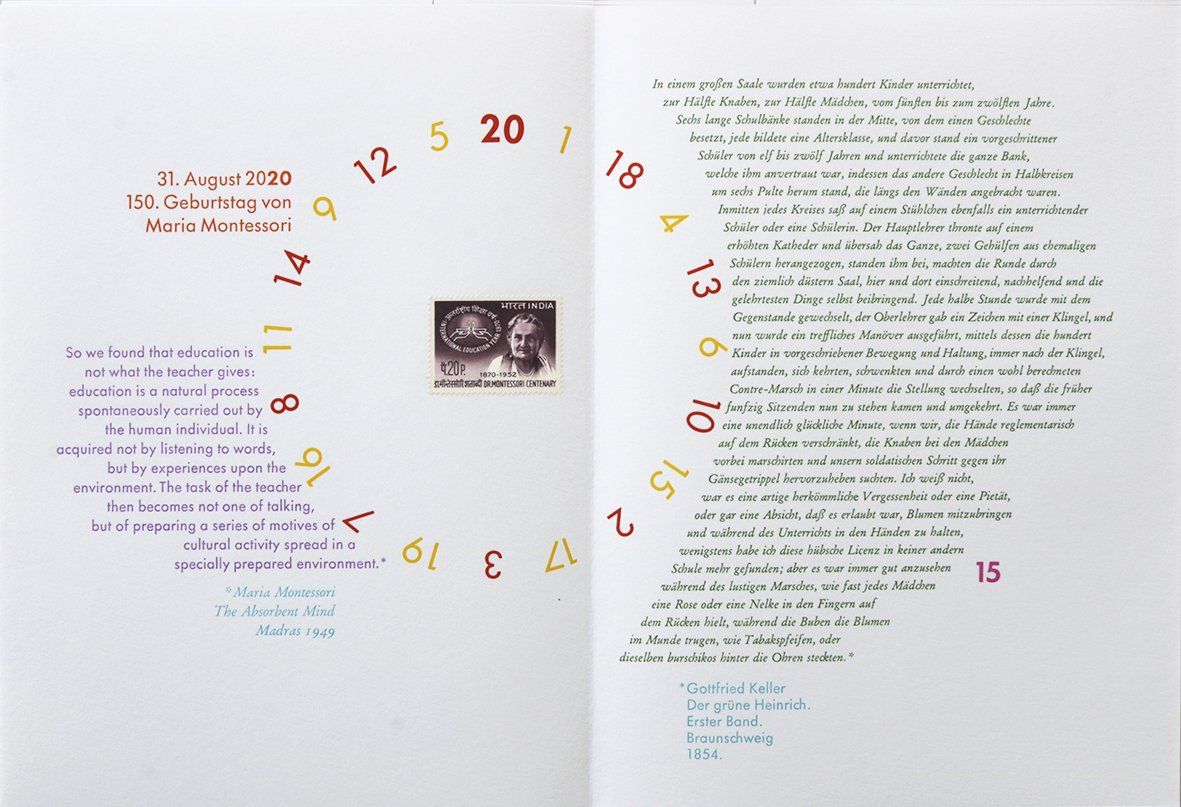 31. August 2020
150. Geburtstag von
Maria Montessori
So we found that education is
not what the teacher gives:
education is a natural process
spontaneously carried out by
the human individual. It is
acquired not by listening to words,
but by experiences upon the
environment. The task of the teacher
then becomes not one of talking,
but of preparing a series of motives of
cultural activity spread in a
specially prepared environment.*
*Maria Montessori
The Absorbent Mind
Madras 1949
20
1
18
4
13
6
10
15
2
17
3
19
7
16
8
11
14
9
12
5
भारत INDIA
अन्तर्राष्ट्रीय शिक्षा वर्ष 1970
INTERNATIONAL EDUCATION YEAR
पै 20 P.
1870-1952
डा. मॉन्तेस्सोरी शताब्दी DR. MONTESSORI CENTENARY
In einem großen Saale wurden etwa hundert Kinder unterrichtet,
zur Hälfte Knaben, zur Hälfte Mädchen, vom fünften bis zum zwölften Jahre.
Sechs lange Schulbänke standen in der Mitte, von dem einen Geschlechte
besetzt, jede bildete eine Altersklasse, und davor stand ein vorgeschrittener
Schüler von elf bis zwölf Jahren und unterrichtete die ganze Bank,
welche ihm anvertraut war, indessen das andere Geschlecht in Halbkreisen
um sechs Pulte herum stand, die längs den Wänden angebracht waren.
Inmitten jedes Kreises saß auf einem Stühlchen ebenfalls ein unterrichtender
Schüler oder eine Schülerin. Der Hauptlehrer thronte auf einem
erhöhten Katheder und übersah das Ganze, zwei Gehülfen aus ehemaligen
Schülern herangezogen, standen ihm bei, machten die Runde durch
den ziemlich düstern Saal, hier und dort einschreitend, nachhelfend und die
gelehrtesten Dinge selbst beibringend. Jede halbe Stunde wurde mit dem
Gegenstande gewechselt, der Oberlehrer gab ein Zeichen mit einer Klingel, und
nun wurde ein treffliches Manöver ausgeführt, mittels dessen die hundert
Kinder in vorgeschriebener Bewegung und Haltung, immer nach der Klingel,
aufstanden, sich kehrten, schwenkten und durch einen wohl berechneten
Contre-Marsch in einer Minute die Stellung wechselten, so daß die früher
funfzig Sitzenden nun zu stehen kamen und umgekehrt. Es war immer
eine unendlich glückliche Minute, wenn wir, die Hände reglementarisch
auf dem Rücken verschränkt, die Knaben bei den Mädchen
vorbei marschirten und unsern soldatischen Schritt gegen ihr
Gänsegetrippel hervorzuheben suchten. Ich weiß nicht,
war es eine artige herkömmliche Vergessenheit oder eine Pietät,
oder gar eine Absicht, daß es erlaubt war, Blumen mitzubringen
und während des Unterrichts in den Händen zu halten,
wenigstens habe ich diese hübsche Licenz in keiner andern
Schule mehr gefunden; aber es war immer gut anzusehen
während des lustigen Marsches, wie fast jedes Mädchen
eine Rose oder eine Nelke in den Fingern auf
dem Rücken hielt, während die Buben die Blumen
im Munde trugen, wie Tabakspfeifen, oder
dieselben burschikos hinter die Ohren steckten.*
15
*Gottfried Keller
Der grüne Heinrich.
Erster Band.
Braunschweig
1854.